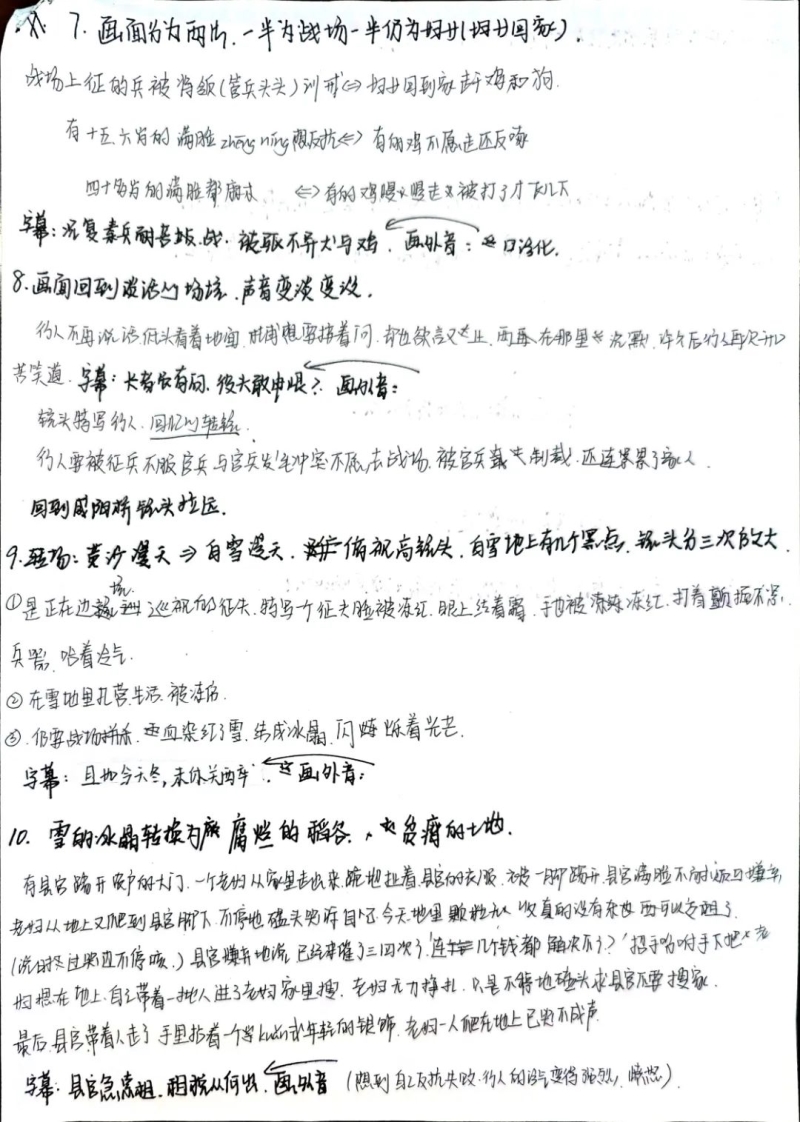 7. 画面分为两片,一半为战场一半仍为妇女(妇女回家).
战场上征的兵被将级(管兵头头)训戒⇔妇女回到家赶鸡和狗.
有十五、六岁的满脸zhēng níng想反抗⇔有的鸡不愿走还反啄
四十多岁的满脸都麻木 ⇔有的鸡慢慢走被打了才飞几下
字幕:况复秦兵耐苦战,战.被驱不异犬与鸡. 画外音: 口语化.
8.画面回到谈话的场境.声音变淡变没.
行人不再说话低头看着地面.杜甫想要接着问.却也欲言又止.两再在那里沉默.许久后行人再次开口
苦笑道.字幕:长者虽有问.役夫敢申恨?.画外音:
镜头特写行人.回忆的转换.
行人要被征兵不服官兵与官兵发生冲突不愿去战场.被官兵制裁.还连累了家人.
回到咸阳桥镜头拉远.
9.转场:黄沙漫天⇒白雪漫天.俯视高镜头.白雪地上有几个黑点.镜头分三次的放大.
①是正在边场巡视的征夫.特写一个征夫脸被冻红.眼上结着霜.手也被冻红.打着颤握不紧
兵器.哈着冷气.
②在雪地里扎营生活.被冻伤.
③.仍要战场拼杀.血染红了雪.结成冰晶.闪烁着光芒.
字幕:且如今天冬,未休关西卒.画外音:
10. 雪的冰晶转换为腐烂的稻谷.贫瘠的土地.
有县官踹开家户的大门.一个老妇从家里走出来.跪地拉着县官的衣服.被一脚踹开.县官满脸不耐烦与嫌弃
老妇从地上又爬到县官脚下.不停地磕头哭诉自己今天地里颗粒无收真的没有东西可以交租了.
(说时哭过来边不停咳.)县官嫌弃地说.已经来催了三四次了'连几个钱都解决不了?'招手吩咐手下把老
妇摁在地上.自己带着一批人进了老妇家里搜.老妇无力挣扎.只是不停地磕头求县官不要搜家.
最后.县官带着人走了手里拈着一个kuǎn式年轻的银饰.老妇一人爬在地上已哭不成声.
字幕:县官急索租.租税从何出.画外音(想到自己反抗失败.行人的语气变得强烈,愤怒).